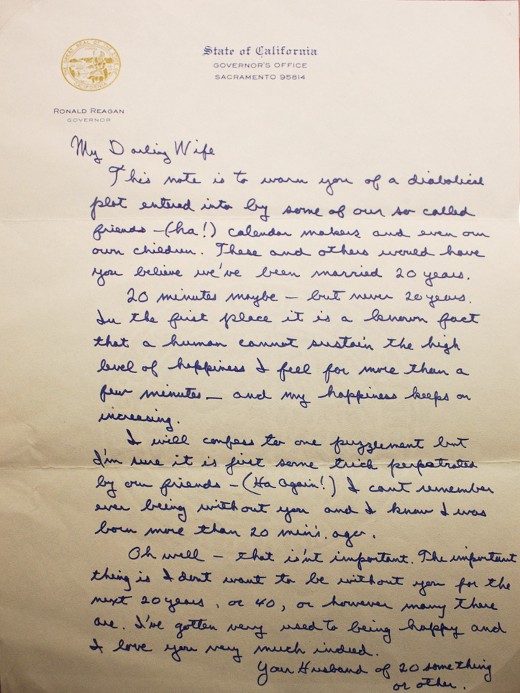 State of California
GOVERNOR'S OFFICE
SACRAMENTO 95814
RONALD REAGAN
GOVERNOR
My Darling Wife
This note is to warn you of a diabolical
plot entered into by some of our so called
friends - (ha!) calendar makers and even our
own children. These and others would have
you believe we've been married 20 years.
20 minutes maybe - but never 20 years.
In the first place it is a known fact
that a human cannot sustain the high
level of happiness I feel for more than a
few minutes - and my happiness keeps on
increasing.
I will confess to one puzzlement but
I'm sure it is just some trick perpetrated
by our friends - (Ha again!) I can't remember
ever being without you and I know I was
born more than 20 min's. ago.
Oh well - that isn't important. The important
thing is I don't want to be without you for the
next 20 years, or 40, or however many there
are. I've gotten very used to being happy and
I love you very much indeed.
Your Husband of 20 something
or other.